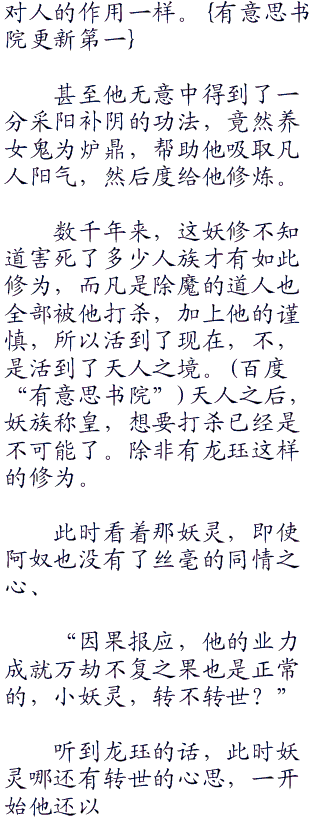 对人的作用一样。{有意思书
院更新第一}
甚至他无意中得到了一
分采阳补阴的功法，竟然养
女鬼为炉鼎，帮助他吸取凡
人阳气，然后度给他修炼。
数千年来，这妖修不知
道害死了多少人族才有如此
修为，而凡是除魔的道人也
全部被他打杀，加上他的谨
慎，所以活到了现在，不，
是活到了天人之境。(百度
“有意思书院”)天人之后，
妖族称皇，想要打杀已经是
不可能了。除非有龙珏这样
的修为。
此时看着那妖灵，即使
阿奴也没有了丝毫的同情之
心、
“因果报应，他的业力
成就万劫不复之果也是正常
的，小妖灵，转不转世？”
听到龙珏的话，此时妖
灵哪还有转世的心思，一开
始他还以